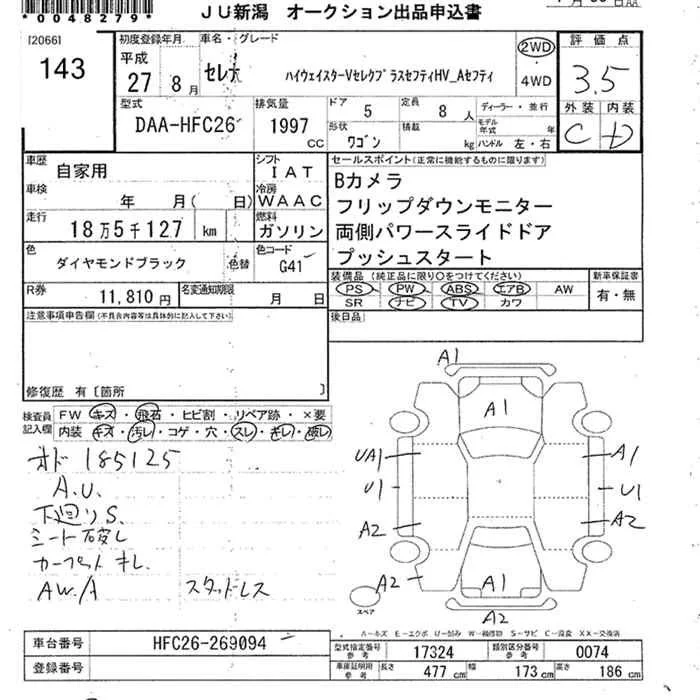 *0048279*
JU新潟 オークション出品申込書
[2066]
143
初度登録年月
平成
27年 8月
車名・グレード
セレナ ハイウェイスターVセレクプラスセフティHV_Aセフティ
2WD
・
4WD
評価点
3.5
外装 内装
C D
型式
DAA-HFC26
排気量
1997 CC
ドア 5
定員 8人
形状 ワゴン
積載 kg
ディーラー・並行
モデル年式 年
ハンドル 左・右
車歴 自家用
シフト IAT
車検 年 月( 日)
冷房 WAAC
走行 18万5千127 km
燃料 ガソリン
色 ダイヤモンドブラック 色替
色コード G41
R券 11,810円
名変通知期限 月 日
セールスポイント(正常に機能するものに限ります)
Bカメラ
フリップダウンモニター
両側パワースライドドア
プッシュスタート
装備品(純正品に限り○をつけてください)
PS PW ABS エアB AW
SR ナビ TV カワ
新車保証書
有・無
後日品
注意事項申告欄(不具合内容等は具体的に記入して下さい)
修復歴 有〔箇所 〕
検査員記入欄
FW キズ・飛石・ヒビ割・リペア跡・×要
内装 キズ・汚レ・コゲ・穴・スレ・キレ・破レ
オド 185125
A.U.
下廻りS.
シート破レ
カーペットキレ.
AW.A スタッドレス
A1
A1
UA1 A1
U1 U1
A2 A2
A2 A1
A2
スペア
A-キズ E-エクボ U-凹み W-補修物 S-サビ C-腐食 XX-交換済
車台番号 HFC26-269094
登録番号
型式指定番号 参考 17324
類別区分番号 参考 0074
車庫証明用 参考 長さ 477 cm 幅 173 cm 高さ 186 cm